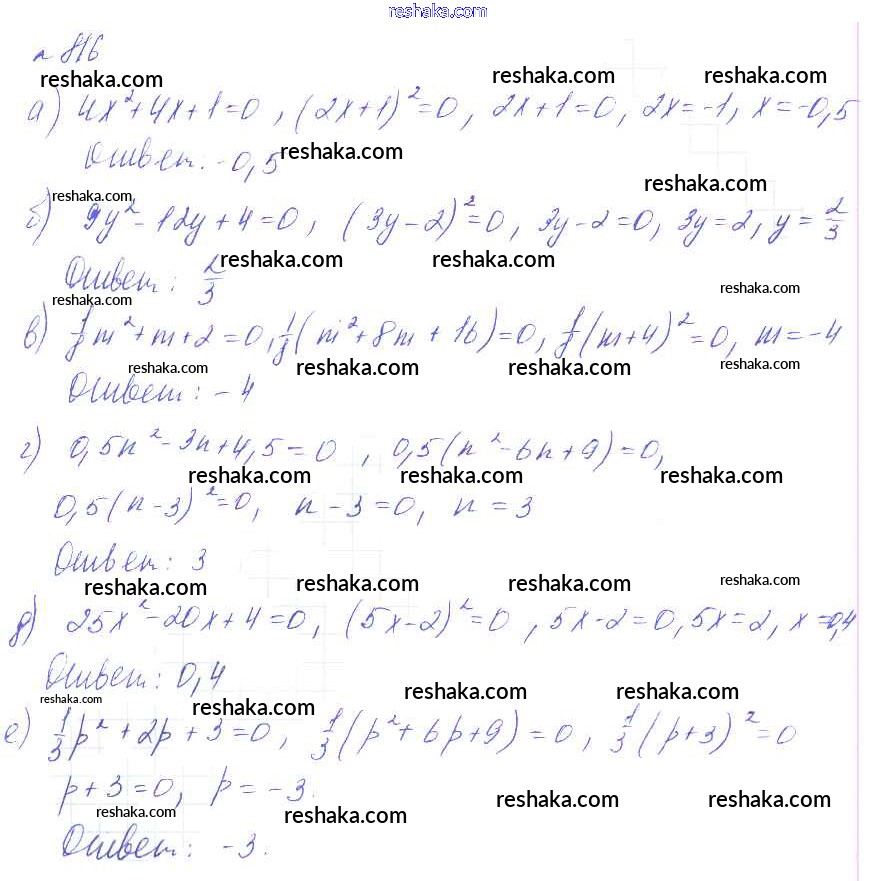 reshaka.com
№ 816
reshaka.com reshaka.com reshaka.com
а) 4x²+4x+1=0, (2x+1)²=0, 2x+1=0, 2x=-1, x=-0,5
Ответ: -0,5 reshaka.com
reshaka.com reshaka.com
б) 9y²-12y+4=0, (3y-2)²=0, 3y-2=0, 3y=2, y=2/3
reshaka.com reshaka.com
Ответ: 2/3
reshaka.com reshaka.com
в) 1/8m²+m+2=0, 1/8(m²+8m+16)=0, 1/8(m+4)²=0, m=-4
reshaka.com reshaka.com reshaka.com reshaka.com
Ответ: -4
г) 0,5n²-3n+4,5=0, 0,5(n²-6n+9)=0,
reshaka.com reshaka.com reshaka.com
0,5(n-3)²=0, n-3=0, n=3
Ответ: 3
reshaka.com reshaka.com reshaka.com reshaka.com
д) 25x²-20x+4=0, (5x-2)²=0, 5x-2=0, 5x=2, x=0,4
Ответ: 0,4
reshaka.com reshaka.com reshaka.com reshaka.com
е) 1/3p²+2p+3=0, 1/3(p²+6p+9)=0, 1/3(p+3)²=0
p+3=0, p=-3.
reshaka.com reshaka.com reshaka.com reshaka.com
Ответ: -3.